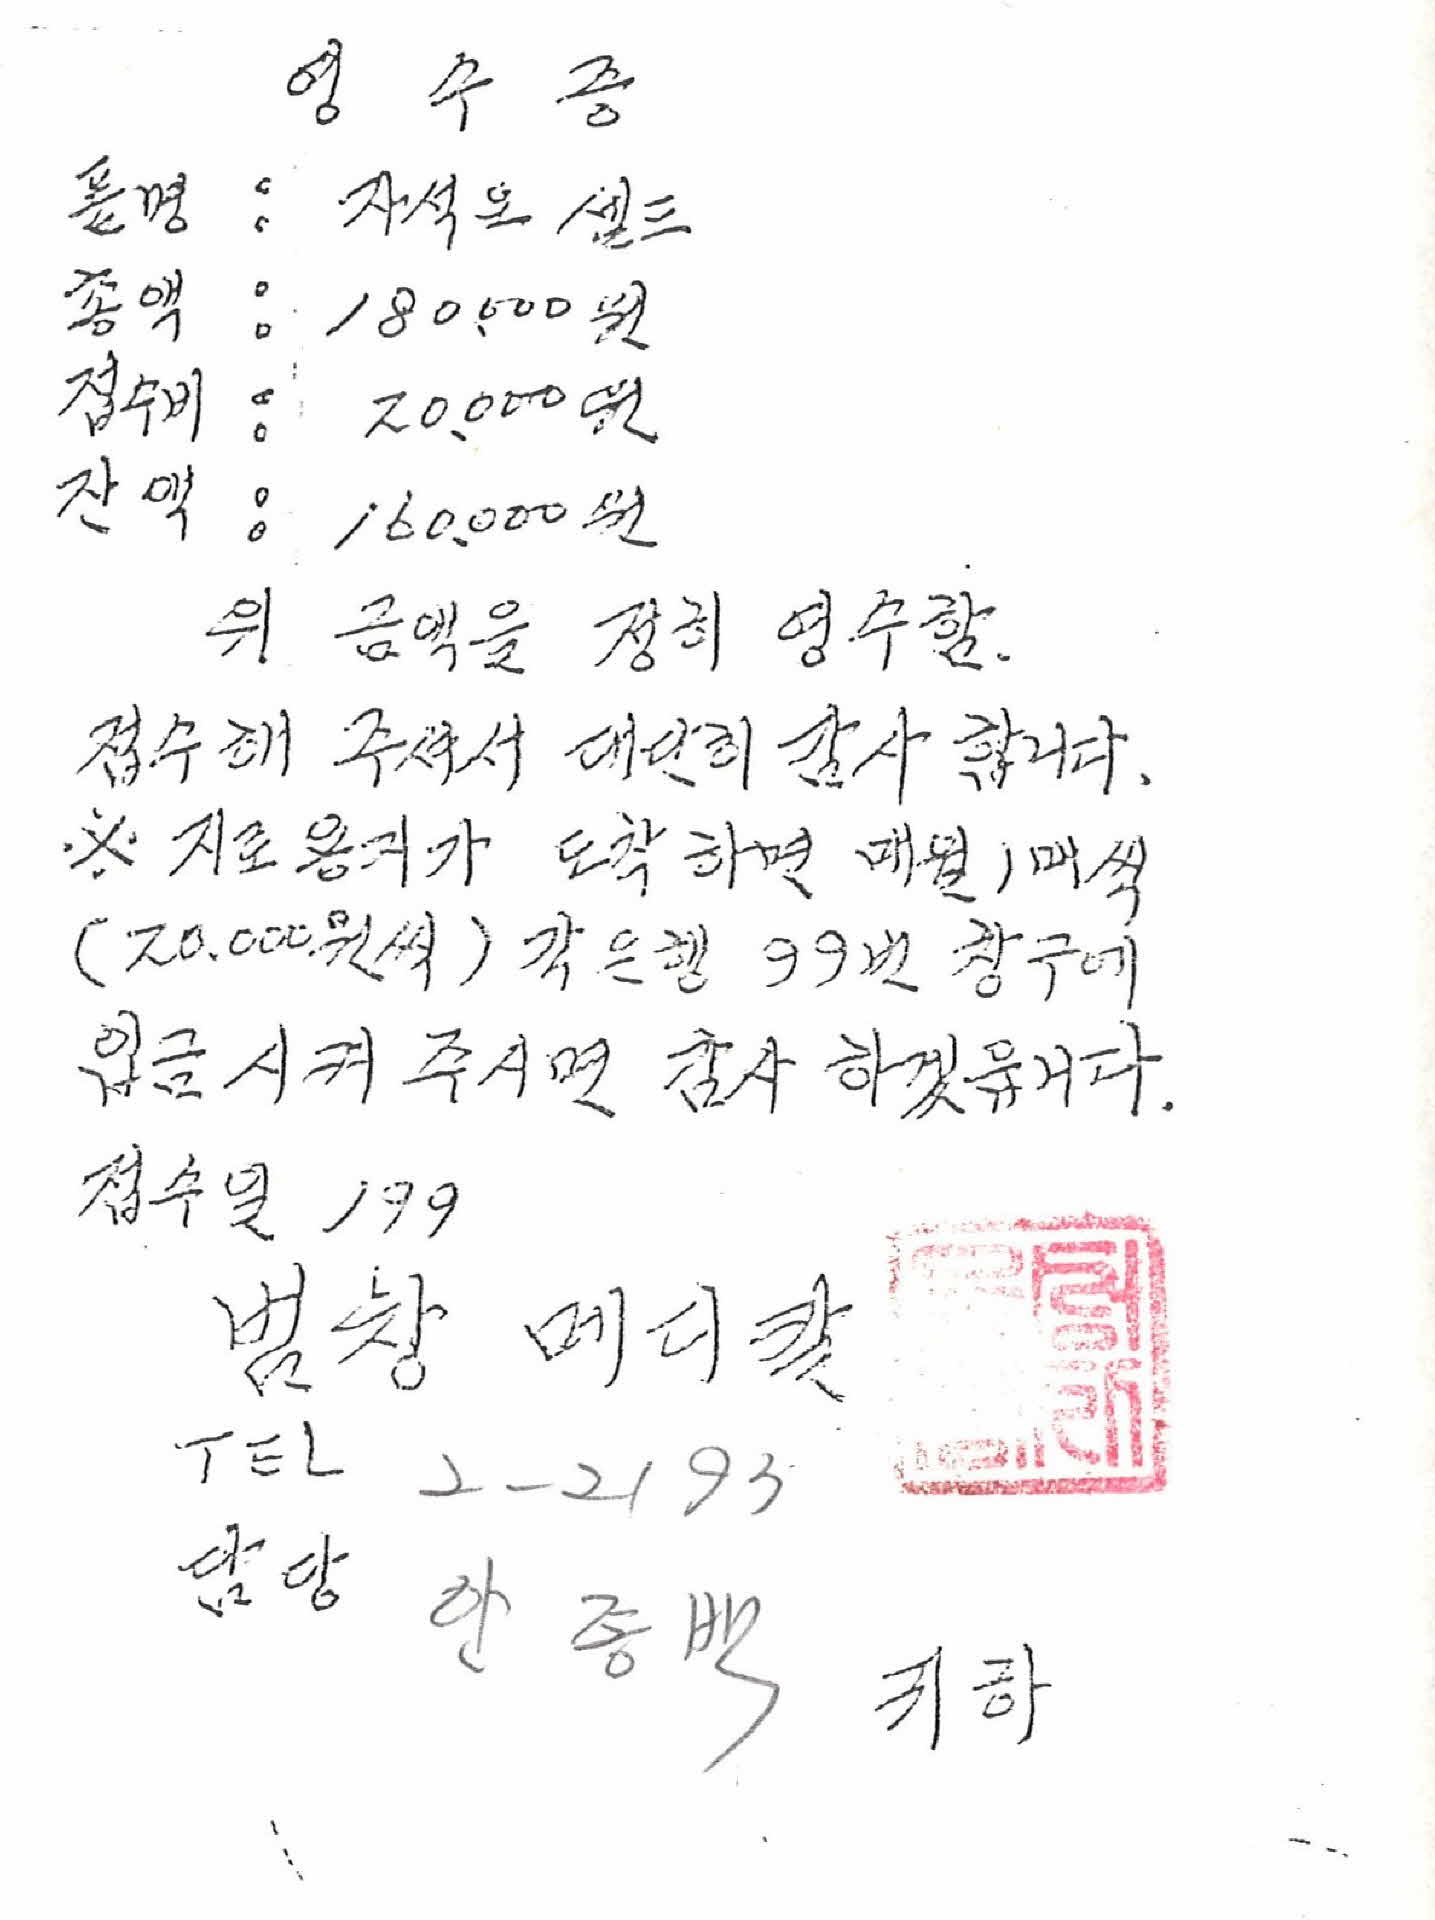 영수증
품명 : 자석요 셀트
총액 : 180,000원
접수비 : 20,000원
잔액 : 160,000원
위 금액을 정히 영수함.
접수해 주셔서 대단히 감사 합니다.
※ 지로용지가 도착하면 매월 1매씩
(20.000원씩) 각 은행 99번 창구에
입금시켜 주시면 감사 하겠읍니다.
접수일 199
범창 메디칼
TEL 2-2193
담당 한종백
귀하